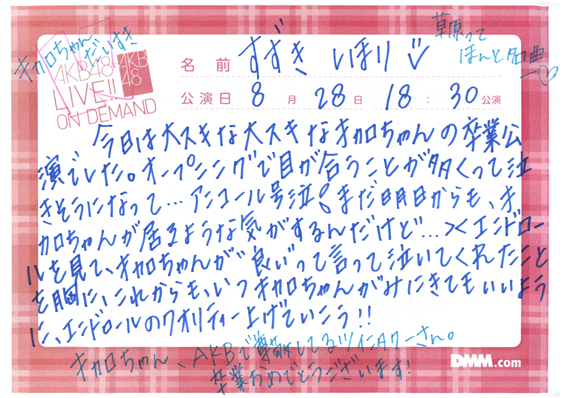 オカロちゃん
だいすき
草原って
ほんと名曲
AKB48
AKB
48
LIVE!!
ON DEMAND
名 前 すずき いほり
公演日 8 月 28 日 18 : 30 公演
今日は大スキな大スキなオカロちゃんの卒業公
演でした。オープニングで目が合うことが多くって泣
きそうになって…アンコール号泣。まだ明日からも、オ
カロちゃんが居るような気がするんだけど…><エンドロー
ルを見て、オカロちゃんが"良いって言って泣いてくれたこと
を胸に、これからも、いつオカロちゃんがみにきてもいいよう
に、エンドロールのクオリティー上げていこう!!
オカロちゃん、AKBで尊敬してるツインタワーさん。
卒業おめでとうございます!
DMM.com